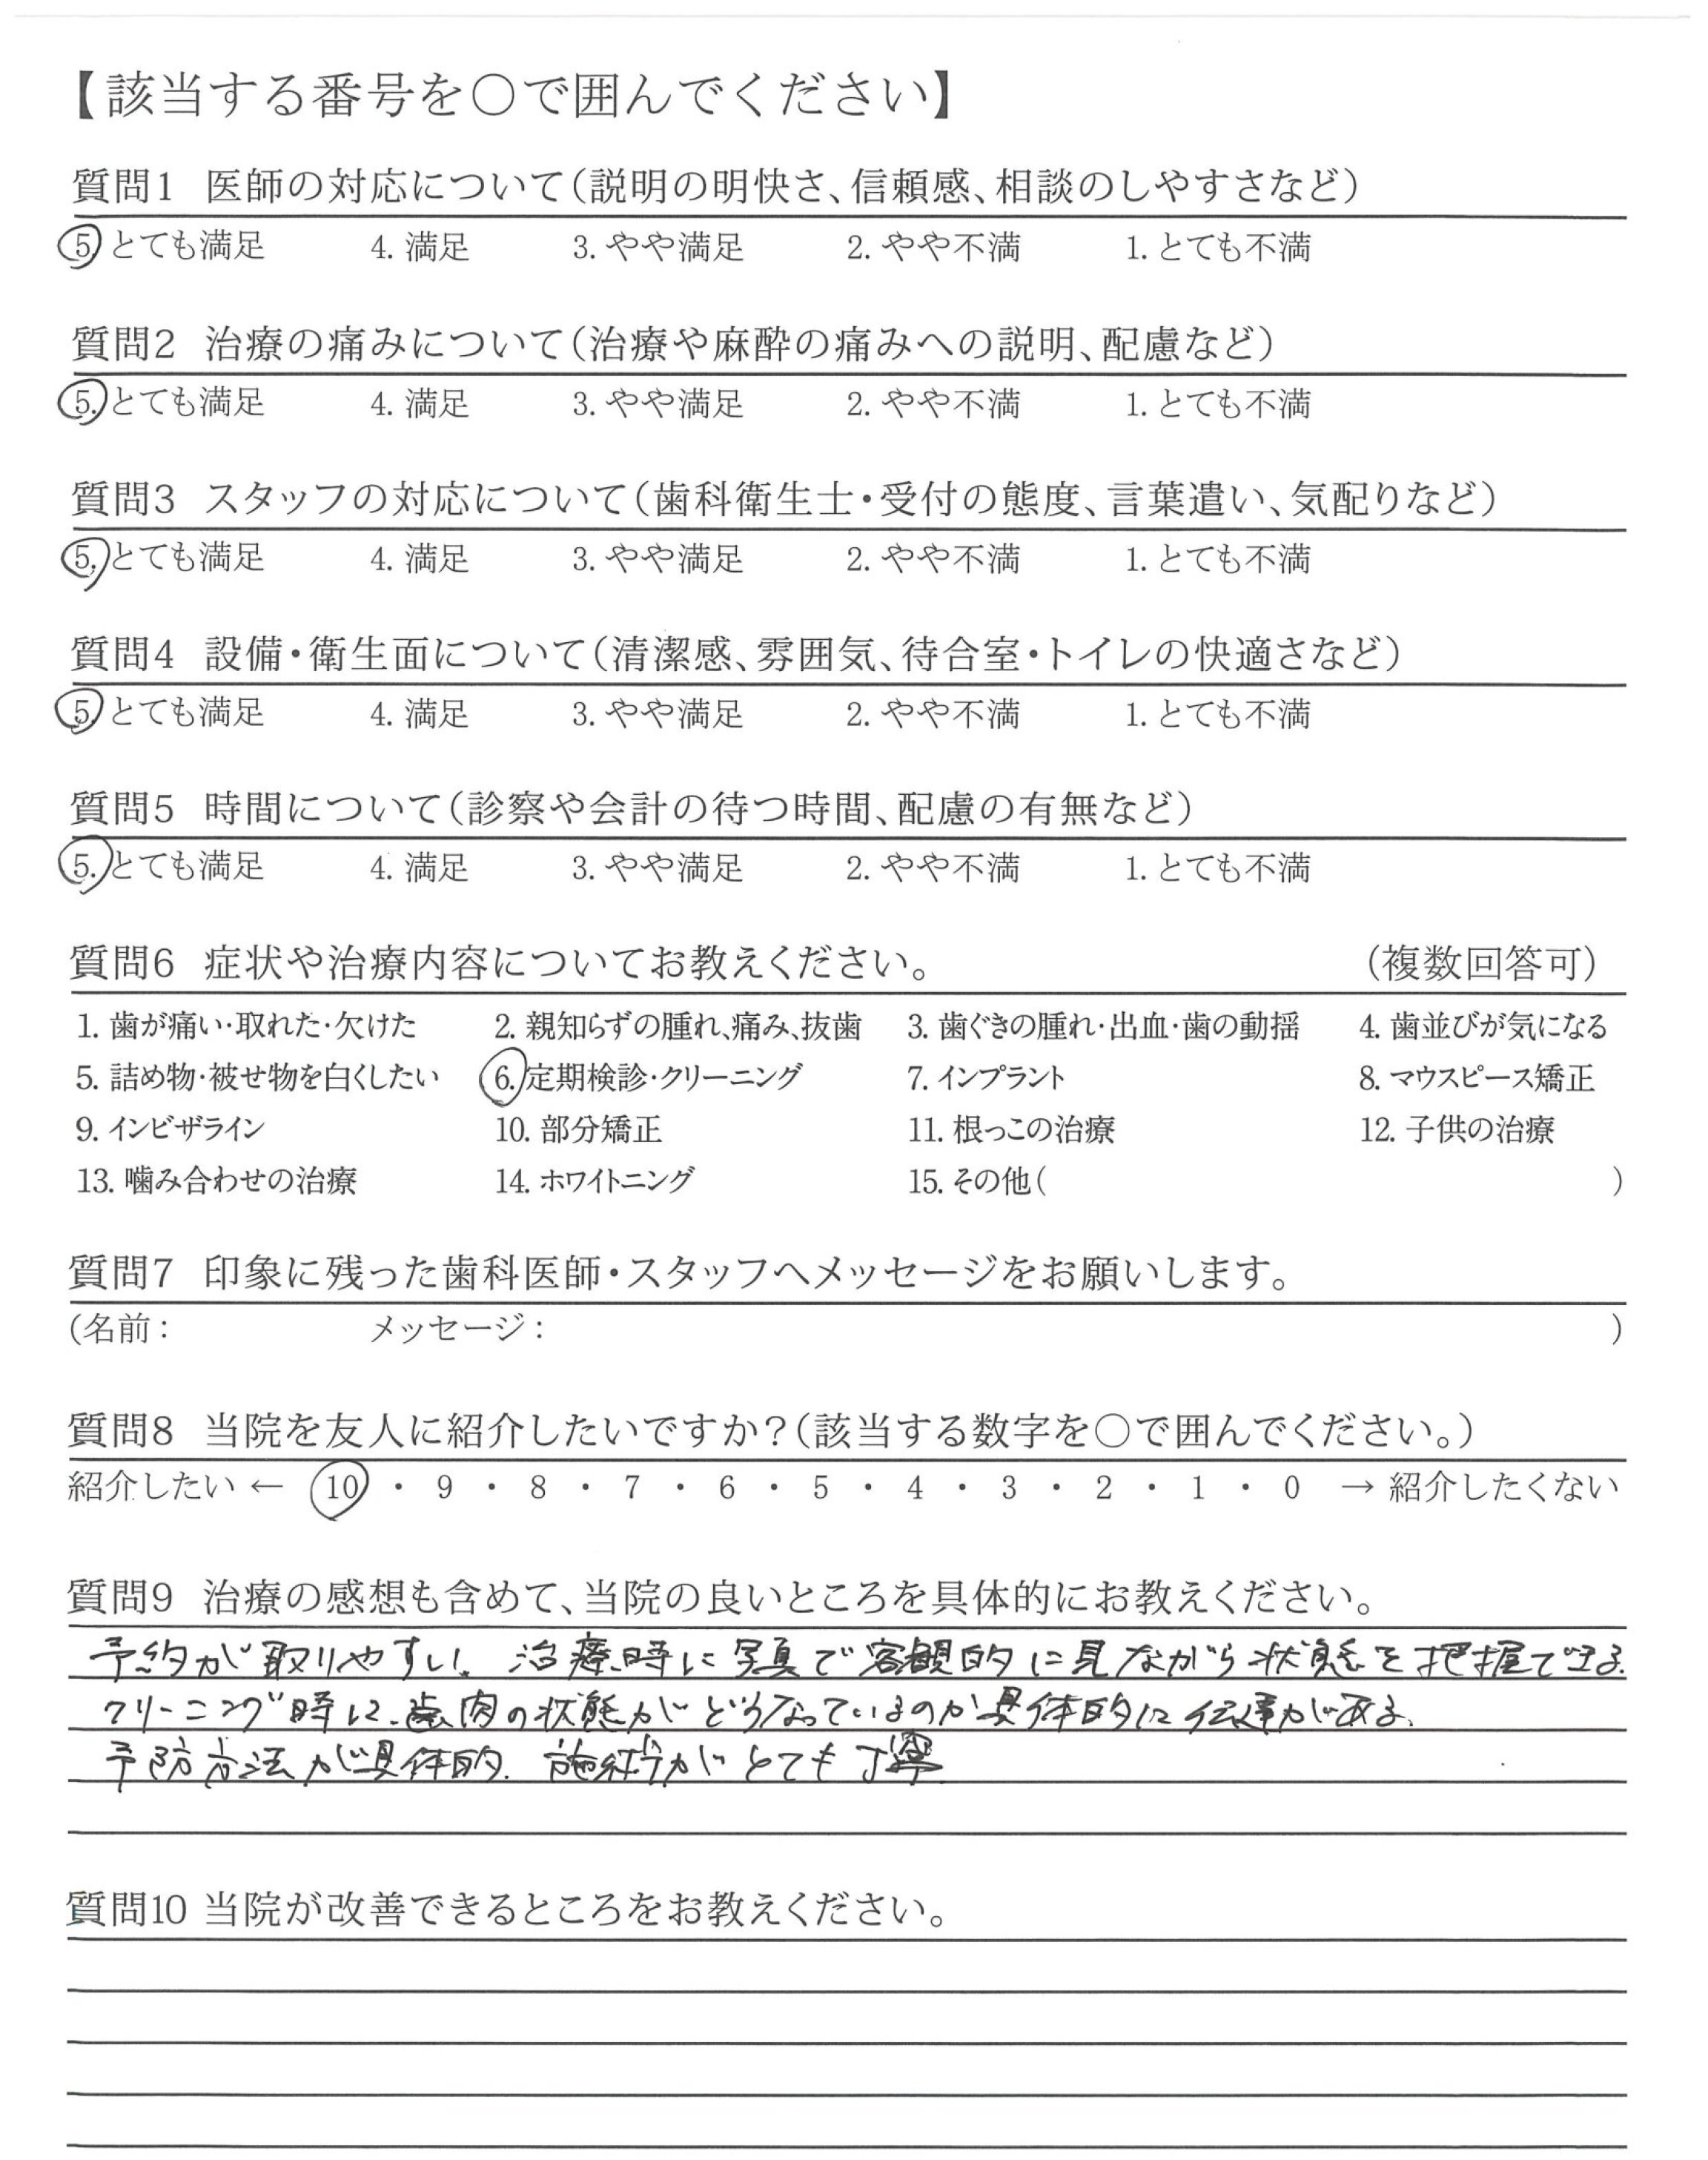 【該当する番号を○で囲んでください】
質問1 医師の対応について(説明の明快さ、信頼感、相談のしやすさなど)
5. とても満足 4. 満足 3. やや満足 2. やや不満 1. とても不満
質問2 治療の痛みについて(治療や麻酔の痛みへの説明、配慮など)
5. とても満足 4. 満足 3. やや満足 2. やや不満 1. とても不満
質問3 スタッフの対応について(歯科衛生士・受付の態度、言葉遣い、気配りなど)
5. とても満足 4. 満足 3. やや満足 2. やや不満 1. とても不満
質問4 設備・衛生面について(清潔感、雰囲気、待合室・トイレの快適さなど)
5. とても満足 4. 満足 3. やや満足 2. やや不満 1. とても不満
質問5 時間について(診察や会計の待つ時間、配慮の有無など)
5. とても満足 4. 満足 3. やや満足 2. やや不満 1. とても不満
質問6 症状や治療内容についてお教えください。 (複数回答可)
1. 歯が痛い・取れた・欠けた 2. 親知らずの腫れ、痛み、抜歯 3. 歯ぐきの腫れ・出血・歯の動揺 4. 歯並びが気になる
5. 詰め物・被せ物を白くしたい 6. 定期検診・クリーニング 7. インプラント 8. マウスピース矯正
9. インビザライン 10. 部分矯正 11. 根っこの治療 12. 子供の治療
13. 噛み合わせの治療 14. ホワイトニング 15. その他( )
質問7 印象に残った歯科医師・スタッフへメッセージをお願いします。
(名前: メッセージ: )
質問8 当院を友人に紹介したいですか?(該当する数字を○で囲んでください。)
紹介したい ← 10 ・ 9 ・ 8 ・ 7 ・ 6 ・ 5 ・ 4 ・ 3 ・ 2 ・ 1 ・ 0 → 紹介したくない
質問9 治療の感想も含めて、当院の良いところを具体的にお教えください。
予約が取りやすい。治療時に写真で客観的に見ながら状態を把握できる。
クリーニング時に、歯肉の状態がどうなっているのか具体的に伝達がある。
予防方法が具体的。施術がとても丁寧
質問10 当院が改善できるところをお教えください。